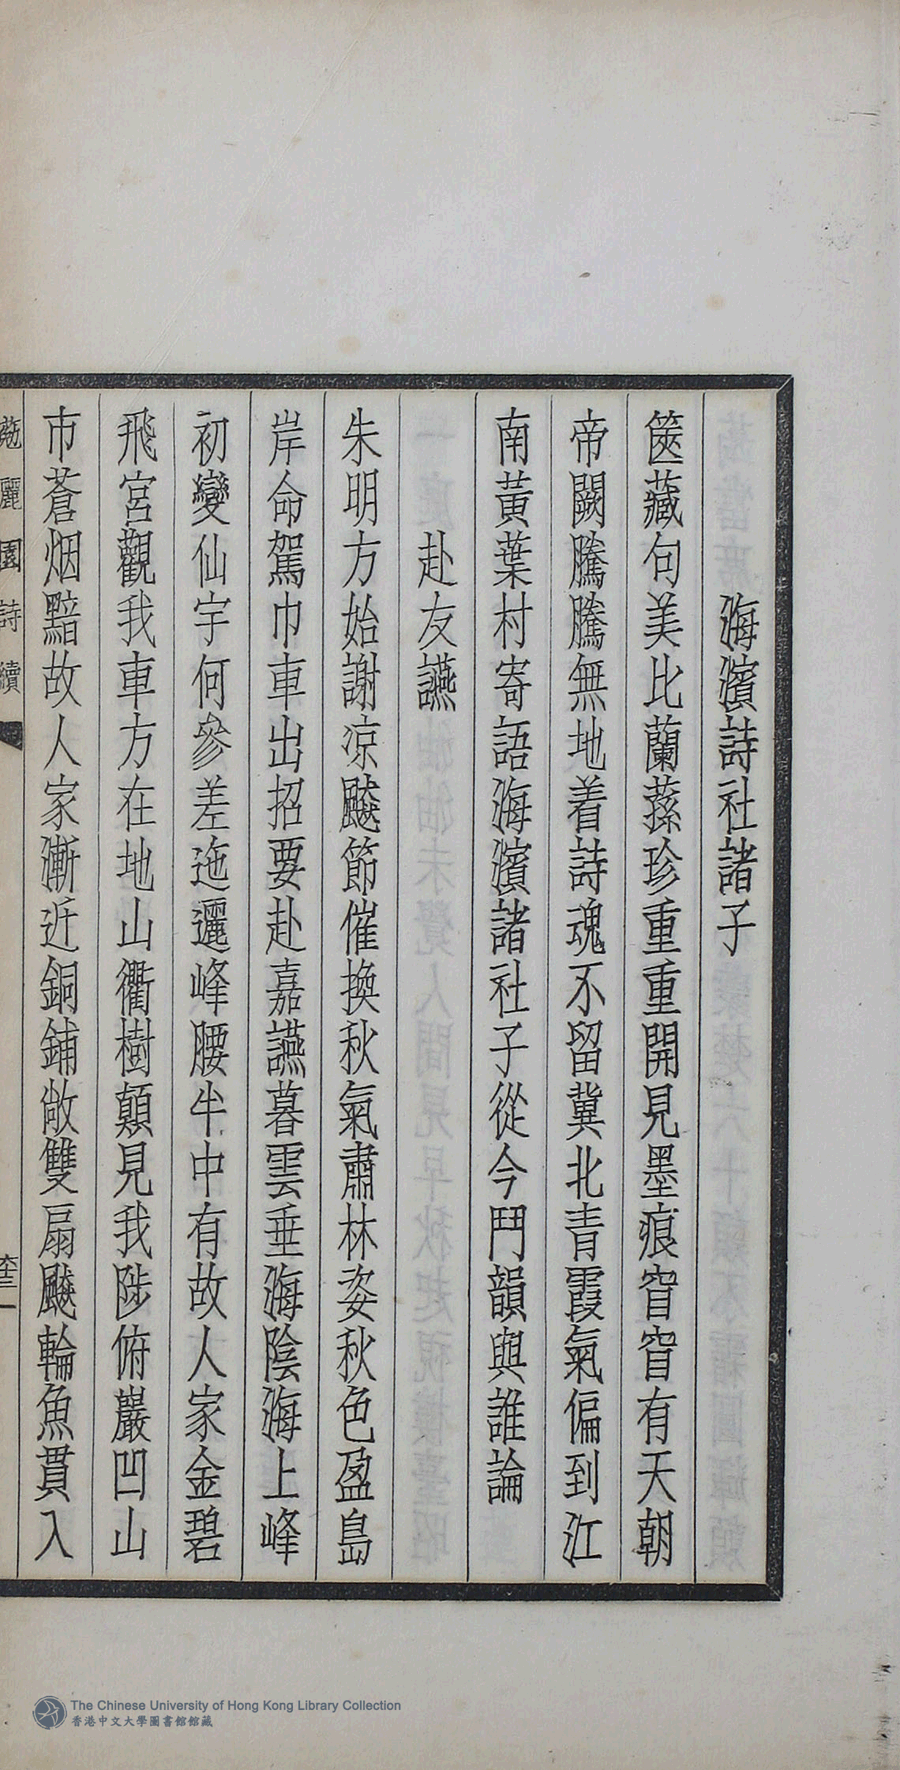 海濱詩社諸子
篋藏句美比蘭蓀珍重重開見墨痕窅窅有天朝
帝闕騰騰無地着詩魂不留冀北青霞氣偏到江
南黃葉村寄語海濱諸社子從今鬥韻與誰論
赴友讌
朱明方始謝凉飈節催換秋氣肅林姿秋色盈島
岸命駕巾車出招要赴嘉讌暮雲垂海陰海上峰
初變仙宇何參差迤邐峰腰半中有故人家金碧
飛宮觀我車方在地山衢樹顛見我陟俯巖凹山
市蒼烟黯故人家漸近銅鋪敞雙扇飈輪魚貫入
麗園詩續
The Chinese University of Hong Kong Library Collection
香港中文大學圖書館館藏